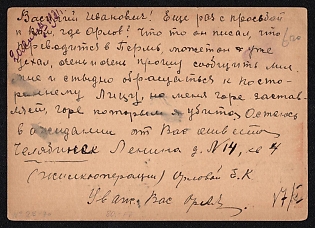 Василий Иванович! Еще раз с просьбой
и где Орлов! Что то он писал, что
переводится в Пермь, может он уже
уехал, очень и очень прошу сообщить мне
мне и стыдно обращаться к посто-
роннему лицу, но меня горе застав-
ляет, горе которым я убита. Остаюсь
в ожидании от Вас
Челябинск Ленина д. №14, кв 4
(Жилкооперации) Орловой Б. К
Уваж. Вас